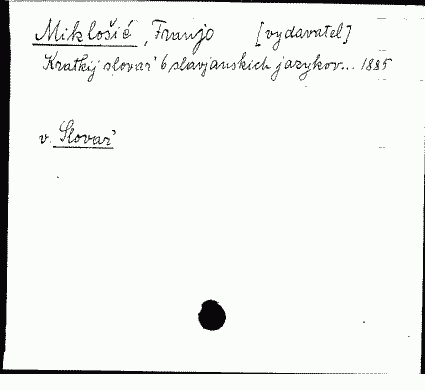 Miklošić, Franjo [vydavatel]
Kratkij slovar' 6 slavjanskich jazykov... 1885
v. Slovar'